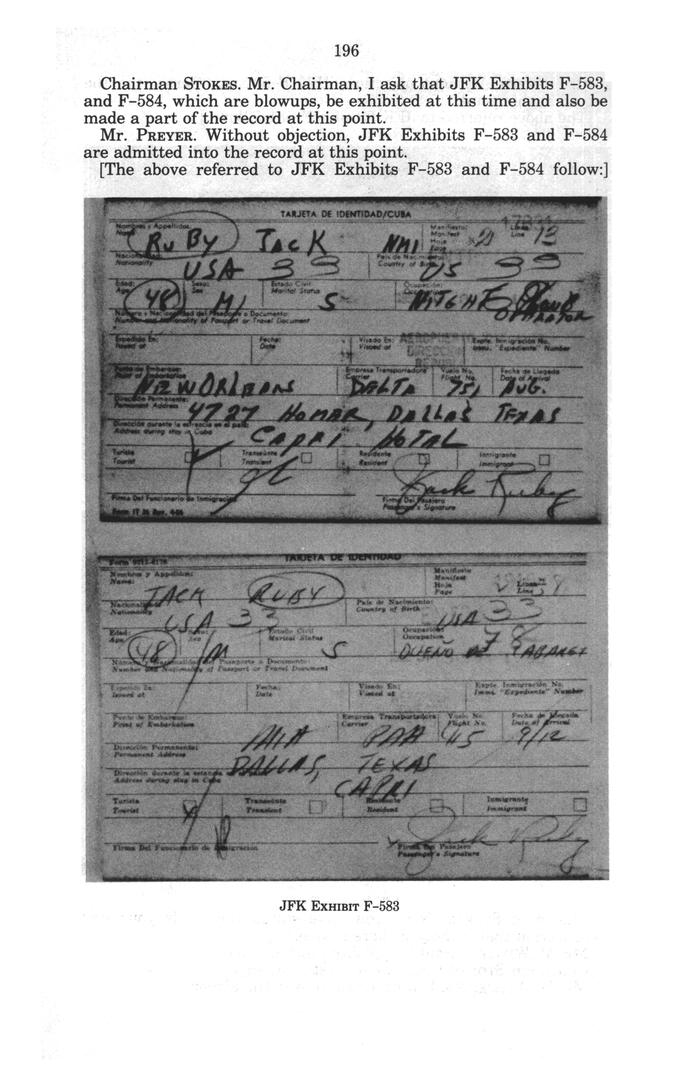 196
Chairman STOKES. Mr. Chairman, I ask that JFK Exhibits F–583,
and F–584, which are blowups, be exhibited at this time and also be
made a part of the record at this point.
Mr. PREYER. Without objection, JFK Exhibits F–583 and F–584
are admitted into the record at this point.
[The above referred to JFK Exhibits F–583 and F–584 follow:]
TARJETA DE IDENTIDAD/CUBA
Nombres y Appellidos: Manifiesto: Linea
Name Manifest Line 13
RUBY JACK NMI Hoja
Nacionalidad: Pais de Nacimiento:
Nationality Country of Birth
USA 33 US 33
Edad: Sexo: Estado Civil Ocupación:
Age Sex Marital Status
48 M S NITGHT
OPERATOR
Número y Nacionalidad del Pasaporte o Documento:
Number and Nationality of Passport or Travel Document
Expedido En: Fecha: Visado En: Expte. Inmigración No.
Issued at Date Visaed at Immi. "Expediente" Number
Punto de Embarque: Empresa Transportadora Vuelo No. Fecha de Llegada
Point of Embarkation Carrier Flight No. Date of Arrival
NEW ORLEANS DELTA 751 AUG.
Dirección Permanente:
Permanent Address
4727 HOMAR, DALLAS TEXAS
Dirección durante la estancia en el país:
Address during stay in Cuba
CAPRI HOTAL
Turista Transeúnte Residente Inmigrante
Tourist Transient Resident Immigrant
Jack Ruby
Firma Del Funcionario de Inmigración Firma Del Pasajero
Passenger's Signature
TARJETA DE IDENTIDAD
Nombres y Appellidos: Manifiesto
Name: Manifest
Hoja Linea
Page Line
JACK RUBY
Nacionalidad: País de Nacimiento:
Nationality Country of Birth
USA 33 USA 33
Edad: Sexo: Estado Civil Ocupación
Age Sex Marital Status Occupation
48 M S 78
DUEÑO DE
Número y Nacionalidad del Pasaporte o Documento:
Number and Nationality of Passport or Travel Document
Expedido En: Fecha: Visado En: Expte. Inmigración No.
Issued at Date Visaed at Immi. "Expediente" Number
Punto de Embarque: Empresa Transportadora Vuelo No. Fecha de Llegada
Point of Embarkation Carrier Flight No. Date of Arrival
MIA PAA 415 9/12
Dirección Permanente:
Permanent Address
DALLAS, TEXAS
Dirección durante la estancia
Address during stay in Cuba
CAPRI
Turista Transeúnte Residente Inmigrante
Tourist Transient Resident Immigrant
Jack Ruby
Firma Del Funcionario de Inmigración Firma Del Pasajero
Passenger's Signature
JFK EXHIBIT F–583